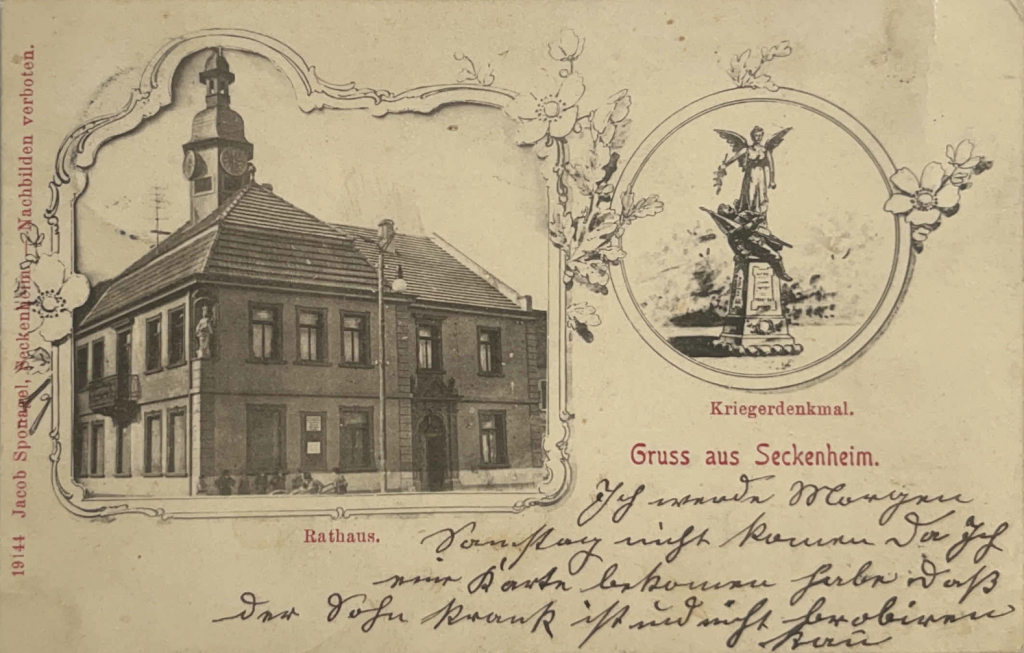 19144 Jacob Sponagel, Seckenheim. Nachbilden verboten.
Kriegerdenkmal.
Gruss aus Seckenheim.
Rathaus.
Ich werde Morgen
Samstag nicht komen Da Ich
eine Karte bekomen habe daß
der Sohn krank ist und nicht brobiren
kan̄